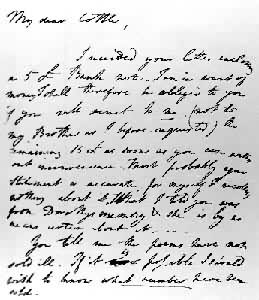 My dear Cottle,
I received your letter, enclosing
a 5£ Bank note. I am in want of
money, & shall therefore be obliged to you
if you will remit to me (not to
my Brother as I before requested) the
remaining 15£ as soon as you can with-
out inconvenience. Most probably your
statement is accurate for myself I recollect
nothing about it. What I told you was
from Dorothy's memory & she is by no
means certain about it.
You tell me the poems have not
sold ill. If it is possible, I should
wish to know what number have been
sold.